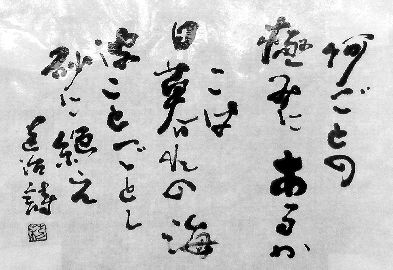 何ごとの
極みにあるか
こは
日暮れの海
波ことごとく
砂に絶え
達治詩